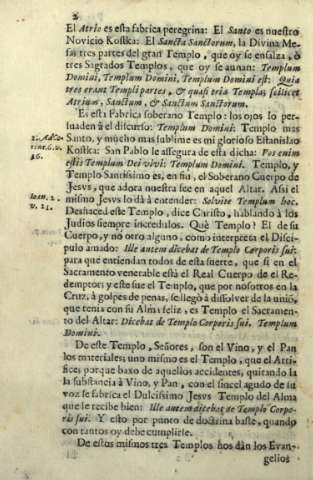 2
El Atrio es esta fabrica peregrina: El Santo es nuestro
Novicio Kostka: El Sancta Sanctorum, la Divina Me-
sa: tres partes del gran Templo, que oy se ensalza, ò
tres Sagrados Templos, que oy se aunan: Templum
Domini, Templum Domini, Templum Domini est: Quia
tres erant Templi partes, & quasi tria Templa; scilicet
Atrium, Sanctum, & Sanctum Sanctorum.
Es esta Fabrica soberano Templo: los ojos lo per-
suaden à el discurso: Templum Domini: Templo mas
Santo, y mucho mas sublime es mi glorioso Estanislao
Kostka: San Pablo le assegura de esta dicha: Vos enim
estis Templum Dei vivi: Templum Domini. Templo, y
Templo Santissimo es, en fin, el Soberano Cuerpo de
Jesvs, que adora nuestra fee en aquel Altar. Assi el
mismo Jesvs lo dà à entender: Solvite Templum hoc.
Deshaced este Templo, dice Christo, hablando à los
Judios siempre incredulos. Què Templo? El de su
Cuerpo, y no otro alguno, como interpreta el Disci-
pulo amado: Ille autem dicebat de Templo Corporis sui:
para que entiendan todos de esta suerte, que si en el
Sacramento venerable està el Real Cuerpo de el Re-
demptor; y este fue el Templo, que por nosotros en la
Cruz, à golpes de penas, se llegò à dissolver de la uniò,
que tenia con su Alma feliz, es Templo el Sacramen-
to del Altar: Dicebat de Templo Corporis sui. Templum
Domini.
De este Templo, Señores, son el Vino, y el Pan
los materiales; uno mismo es el Templo, que el Arti-
fice; porque baxo de aquellos accidentes, quitando la
la substancia à Vino, y Pan, con el sincel agudo de su
voz se fabrica el Dulcissimo Jesvs Templo del Alma
que le recibe bien: Ille autem dicebat de Templo Corpo-
ris sui. Y esto por punto de doctrina baste, quando
con tantos oy debe cumplirse.
De estos mismos tres Templos nos dàn los Evan-
gelios
2. Ad Co-
rint. 6. v.
16.
Ioan. 2.
v. 21.